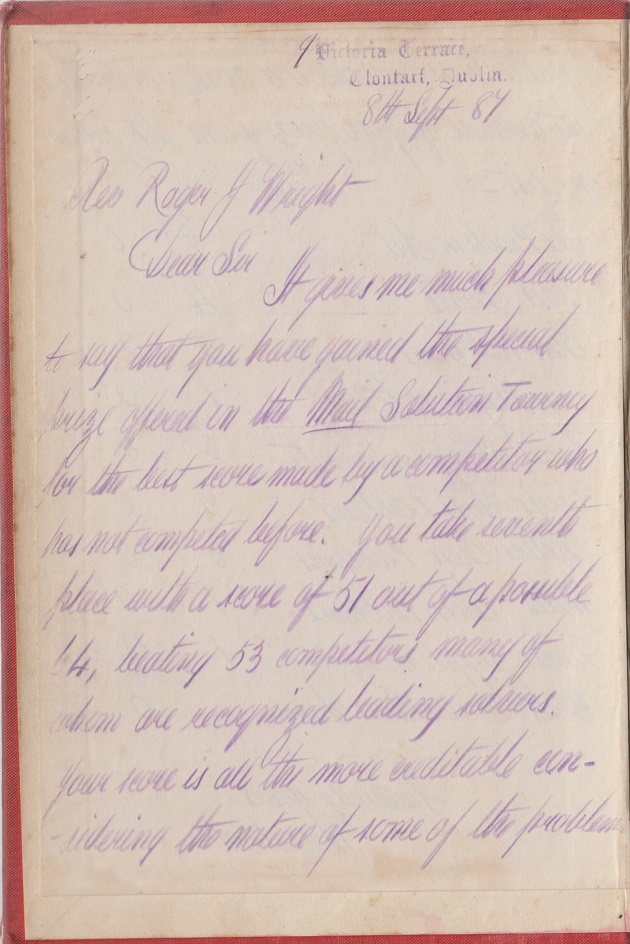 9 Victoria Terrace,
Clontarf, Dublin.
8th Sept 87
Rev Roger J Wright
Dear Sir
It gives me much pleasure
to say that you have gained the special
prize offered in the Mail Solution Tourney
for the best score made by a competitor who
has not competed before. You take seventh
place with a score of 51 out of a possible
64, beating 53 competitors many of
whom are recognized leading solvers.
Your score is all the more creditable con-
-sidering the nature of some of the problems